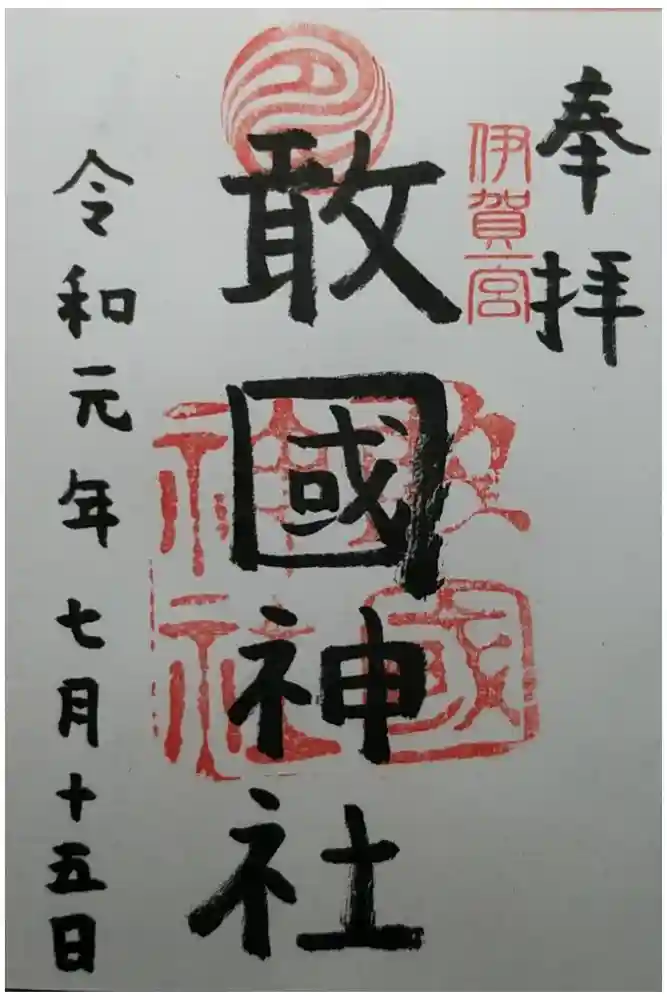 奉拝
伊賀一宮
敢國神社
敢國神社
令和元年七月十五日